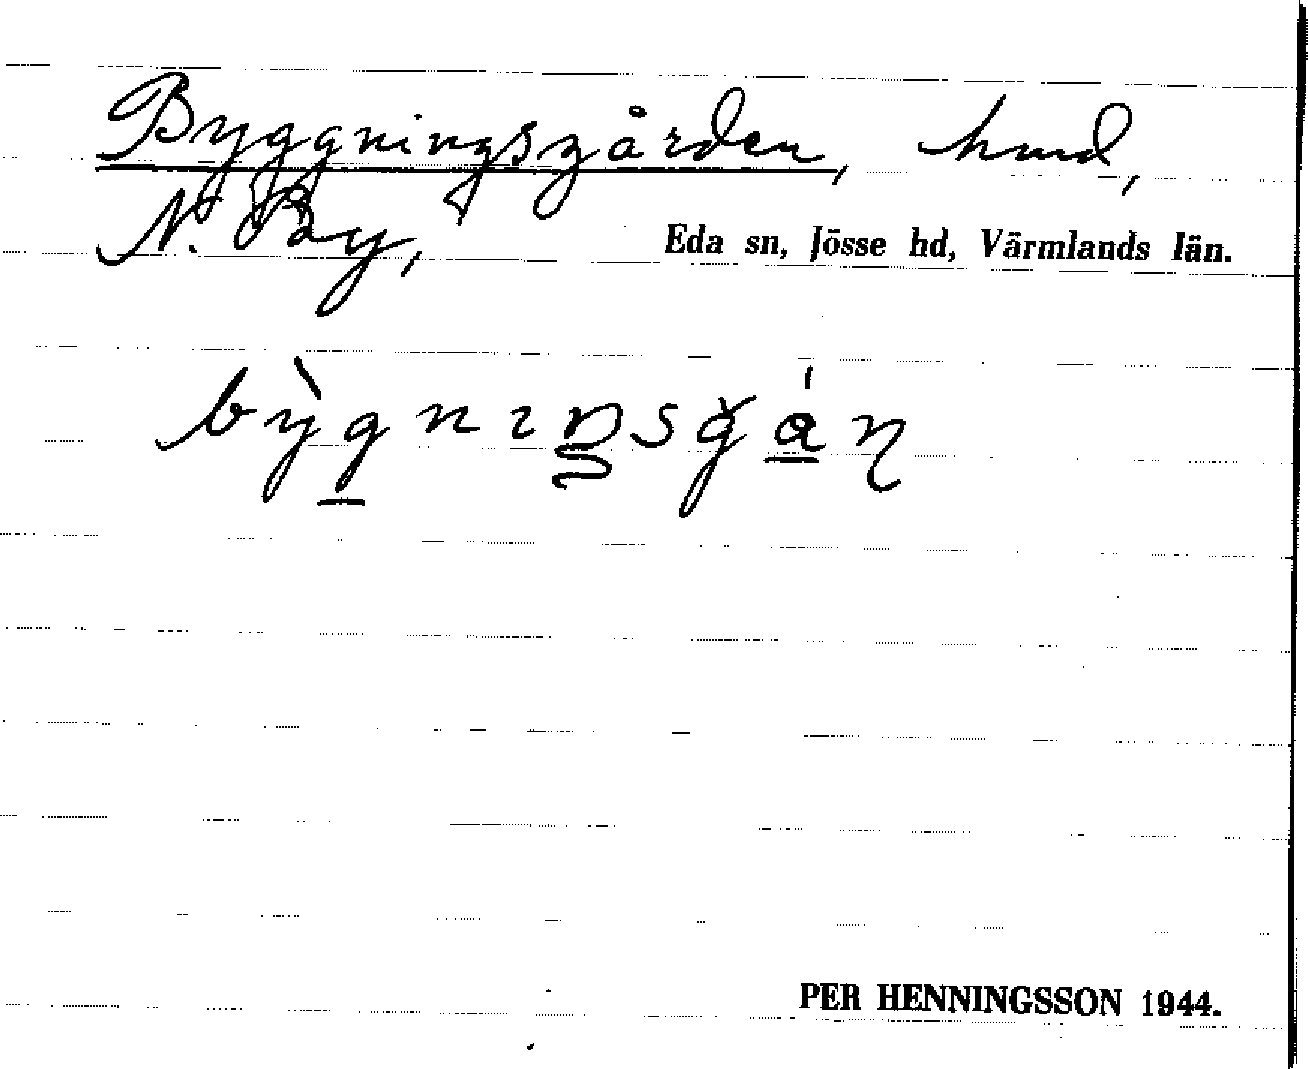 Byggningsgården, hmd,
N. By,
Eda sn, Jösse hd, Värmlands län.
PER HENNINGSSON 1944.